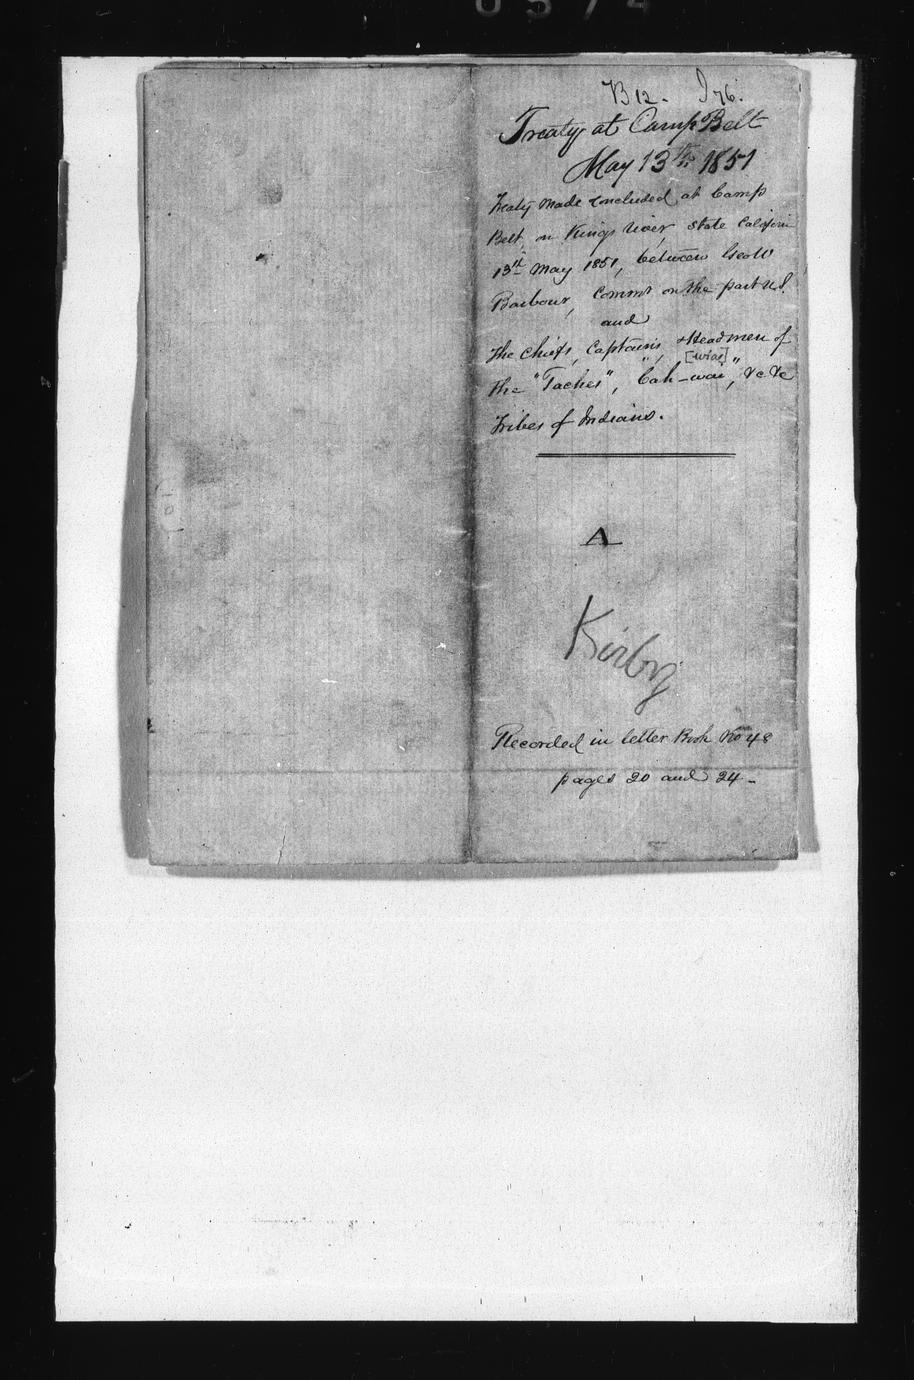 B 12. I 76.
Treaty at Camp Belt
May 13th 1851
Treaty made & concluded at Camp
Belt, on Kings river, state Californi
13th May 1851, between Geo W
Barbour, Commr on the part U.S.
and
the Chiefs, Captains, & Headmen of
[wia]
the "Taches", "Cah-wai", &c &c
tribes of Indians.
A
Kirby
Recorded in letter Book No 48
pages 20 and 24-